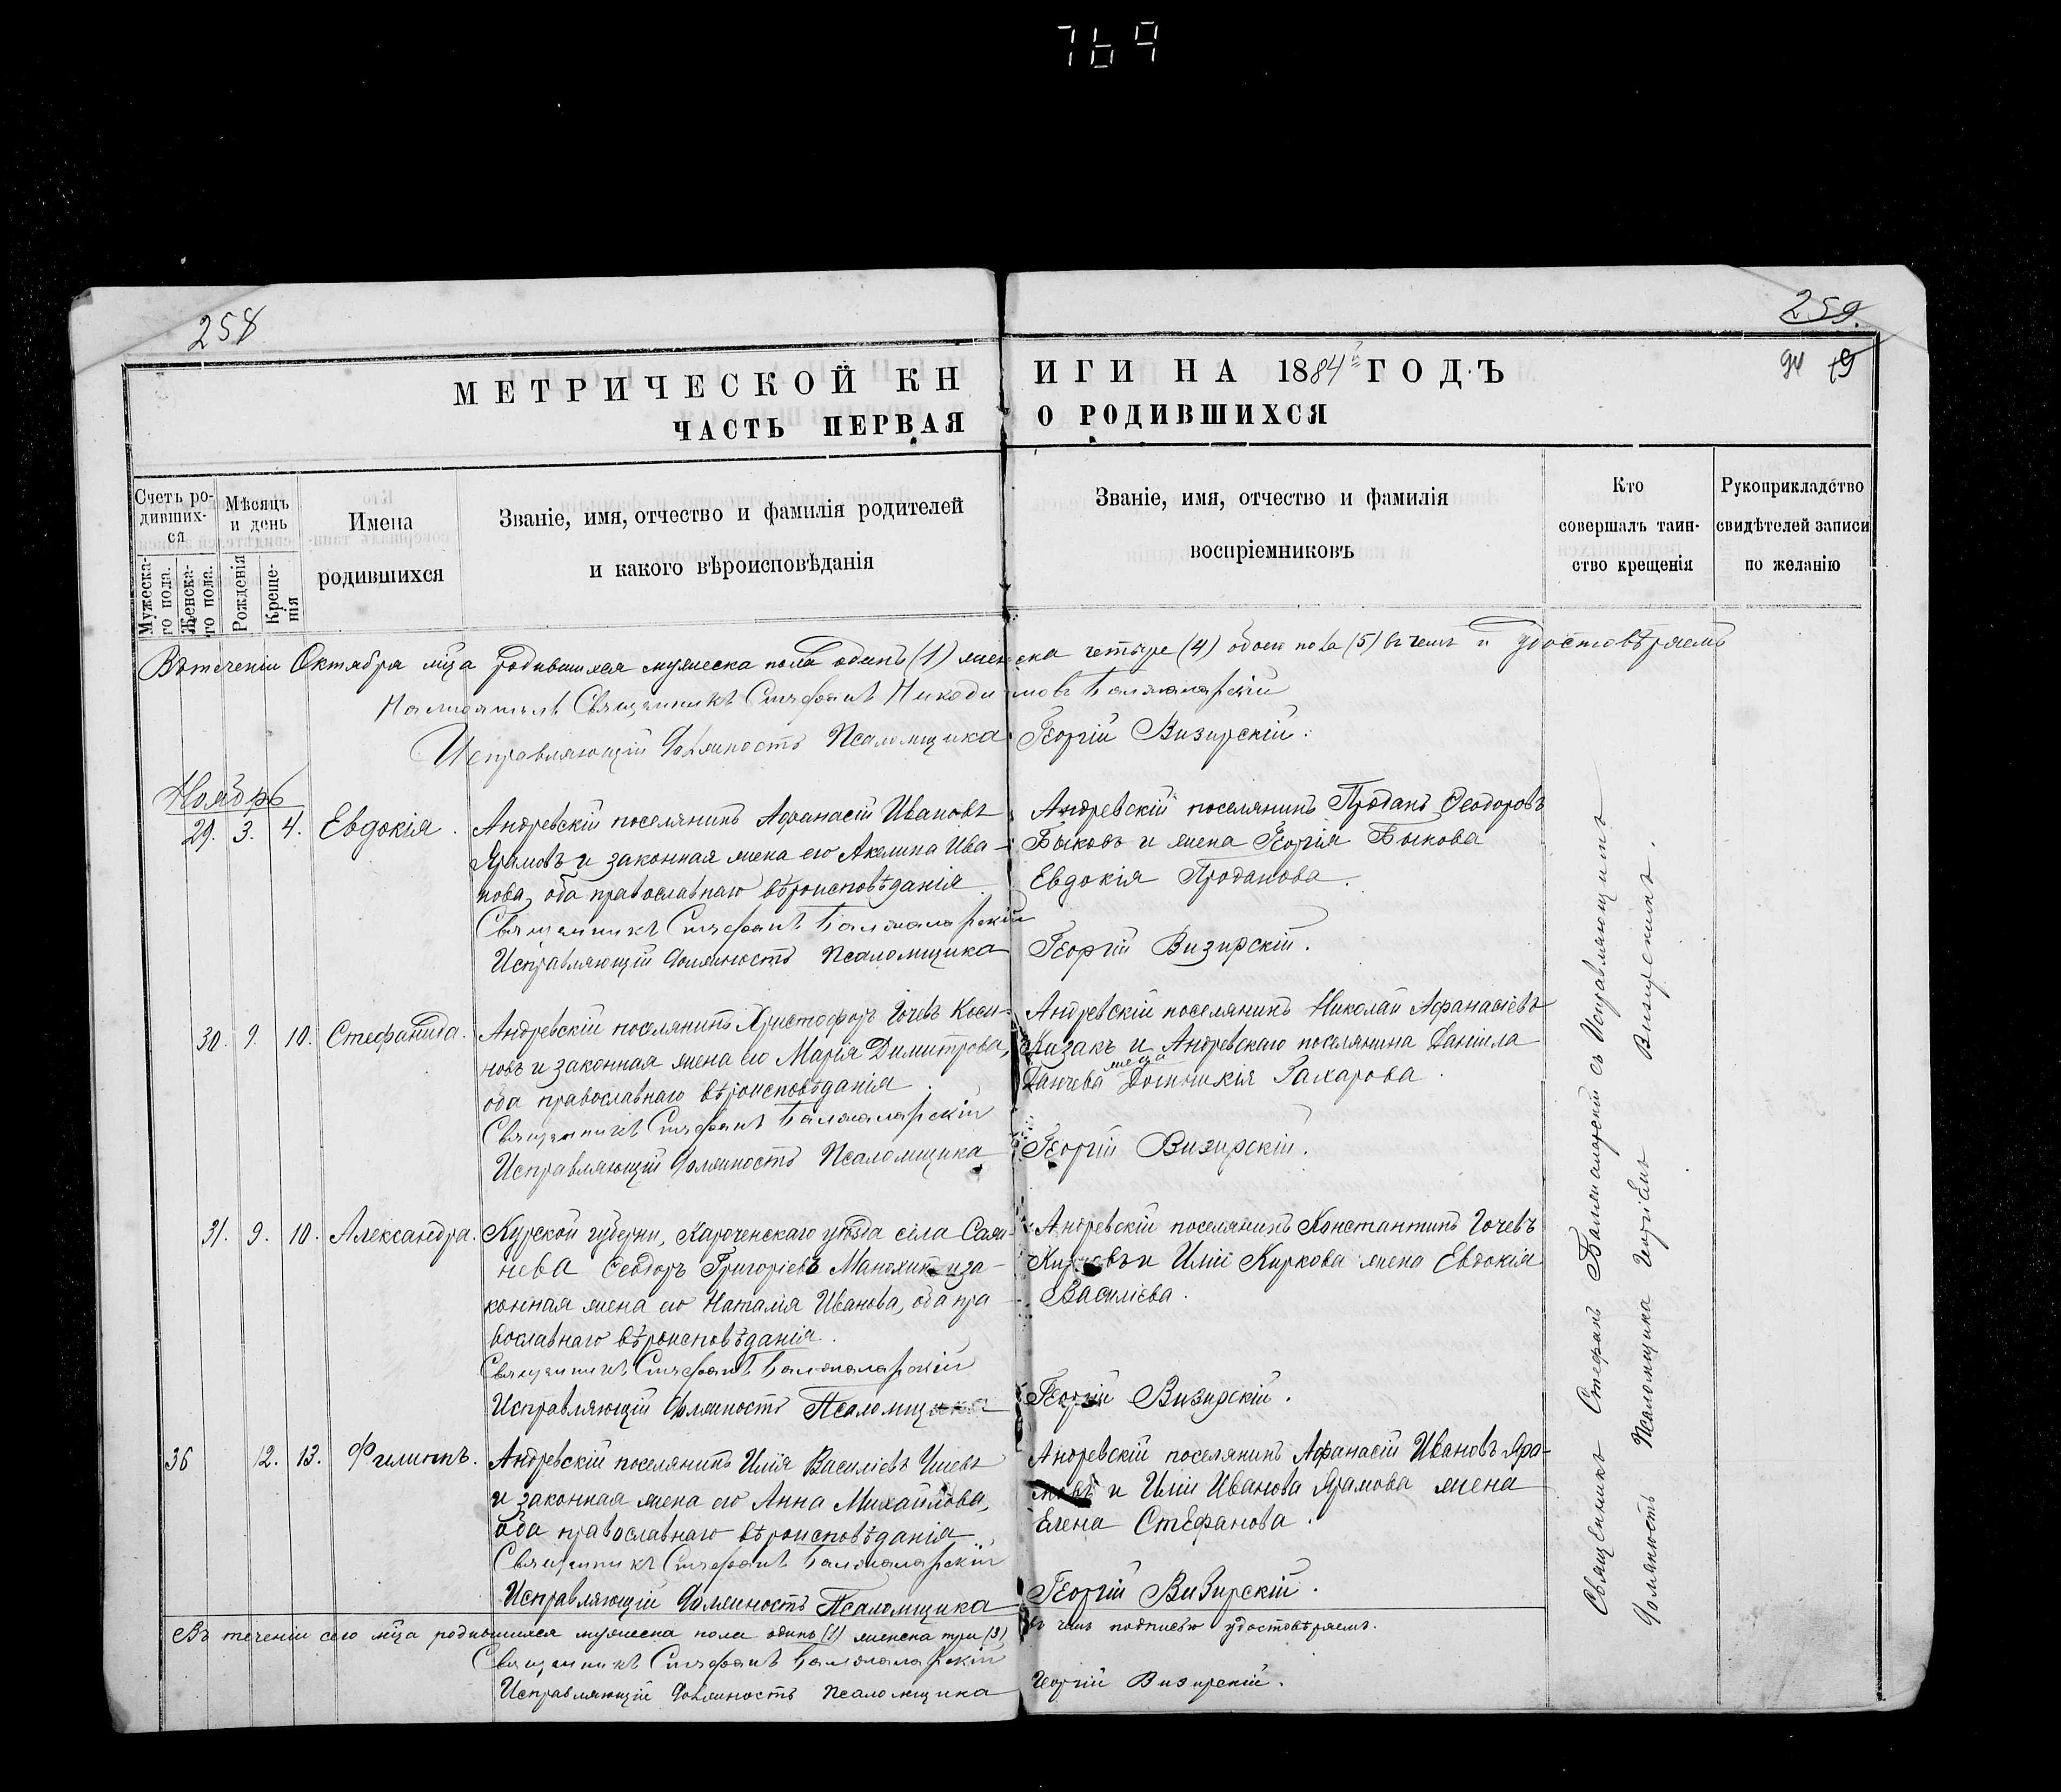 769
258
259.
94 19
МЕТРИЧЕСКОЙ КНИГИ НА 1884й ГОДЪ
ЧАСТЬ ПЕРВАЯ О РОДИВШИХСЯ
Счетъ родившихся
Мужескаго пола.
Женскаго пола.
Мѣсяцъ и день
Рожденія
Крещенія
Имена родившихся
Званіе, имя, отчество и фамилія родителей
и какого вѣроисповѣданія
Званіе, имя, отчество и фамилія
воспріемниковъ
Кто
совершалъ таин-
ство крещенія
Рукоприкладство
свидѣтелей записи
по желанію
Въ теченіи Октября мца родившихся мужеска пола одинъ (1) женска четыре (4) обоего пола (5) въ чемъ и удостовѣряемъ
Настоятель Священникъ Стефанъ Никодимовъ Балжаларскій
Исправляющій должность Псаломщика Георгій Визирскій.
Ноябрь
29. 3. 4. Евдокія.
Андревскій поселянинъ Афанасій Ивановъ
Ярамовъ и законная жена его Акелина Ива-
нова, оба православнаго вѣроисповѣданія
Священникъ Стефанъ Балжаларскій
Исправляющій должность Псаломщика
Андревскій поселянинъ Проданъ Ѳеодоровъ
Быковъ и жена Георгія Быкова
Евдокія Проданова.
Георгій Визирскій.
30. 9. 10. Стефанида.
Андревскій поселянинъ Христофоръ Гочевъ Коси-
новъ и законная жена его Марія Димитрова,
оба православнаго вѣроисповѣданія.
Священникъ Стефанъ Балжаларскій
Исправляющій должность Псаломщика
Андревскій поселянинъ Николай Афанасіевъ
Казакъ и Андревскаго поселянина Даніила
Танчева жена Домникія Захарова.
Георгій Визирскій.
31. 9. 10. Александра.
Курской губерни, Кароченскаго уѣзда села
нева Ѳеодоръ Григоріевъ Манохинъ и за-
конная жена его Наталія Иванова, оба пра-
вославнаго вѣроисповѣданія.
Священникъ Стефанъ Балжаларскій
Исправляющій должность Псаломщика
Андревскій поселянинъ Константинъ Гочевъ
и Иліи Киркова жена Евдокія
Василіева.
Георгій Визирскій.
36 12. 13. Филиппъ.
Андревскій поселянинъ Илія Василіевъ
и законная жена его Анна Михайлова,
оба православнаго вѣроисповѣданія.
Священникъ Стефанъ Балжаларскій
Исправляющій должность Псаломщика
Андревскій поселянинъ Афанасій Ивановъ Яра-
мовъ и Иліи Иванова Ярамова жена
Елена Стефанова.
Георгій Визирскій.
Въ теченіи сего мца родившихся мужеска пола одинъ (1) женска три (3) въ чемъ подписью удостовѣряемъ.
Священникъ Стефанъ Балжаларскій
Исправляющій должность Псаломщика Георгій Визирскій.
Священникъ Стефанъ Балжаларскій съ Исправляющимъ
должность Псаломщика Георгіемъ Визирскимъ.